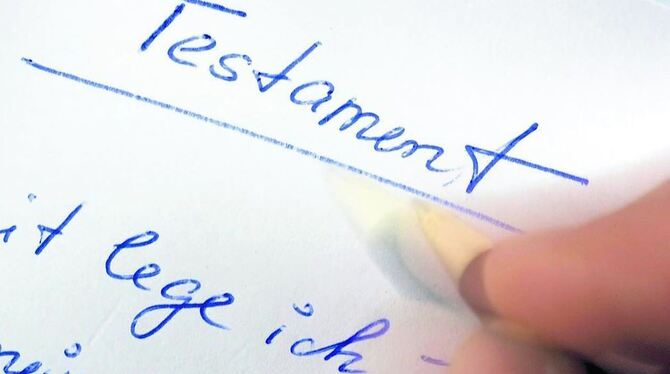 Testament
it lege ich